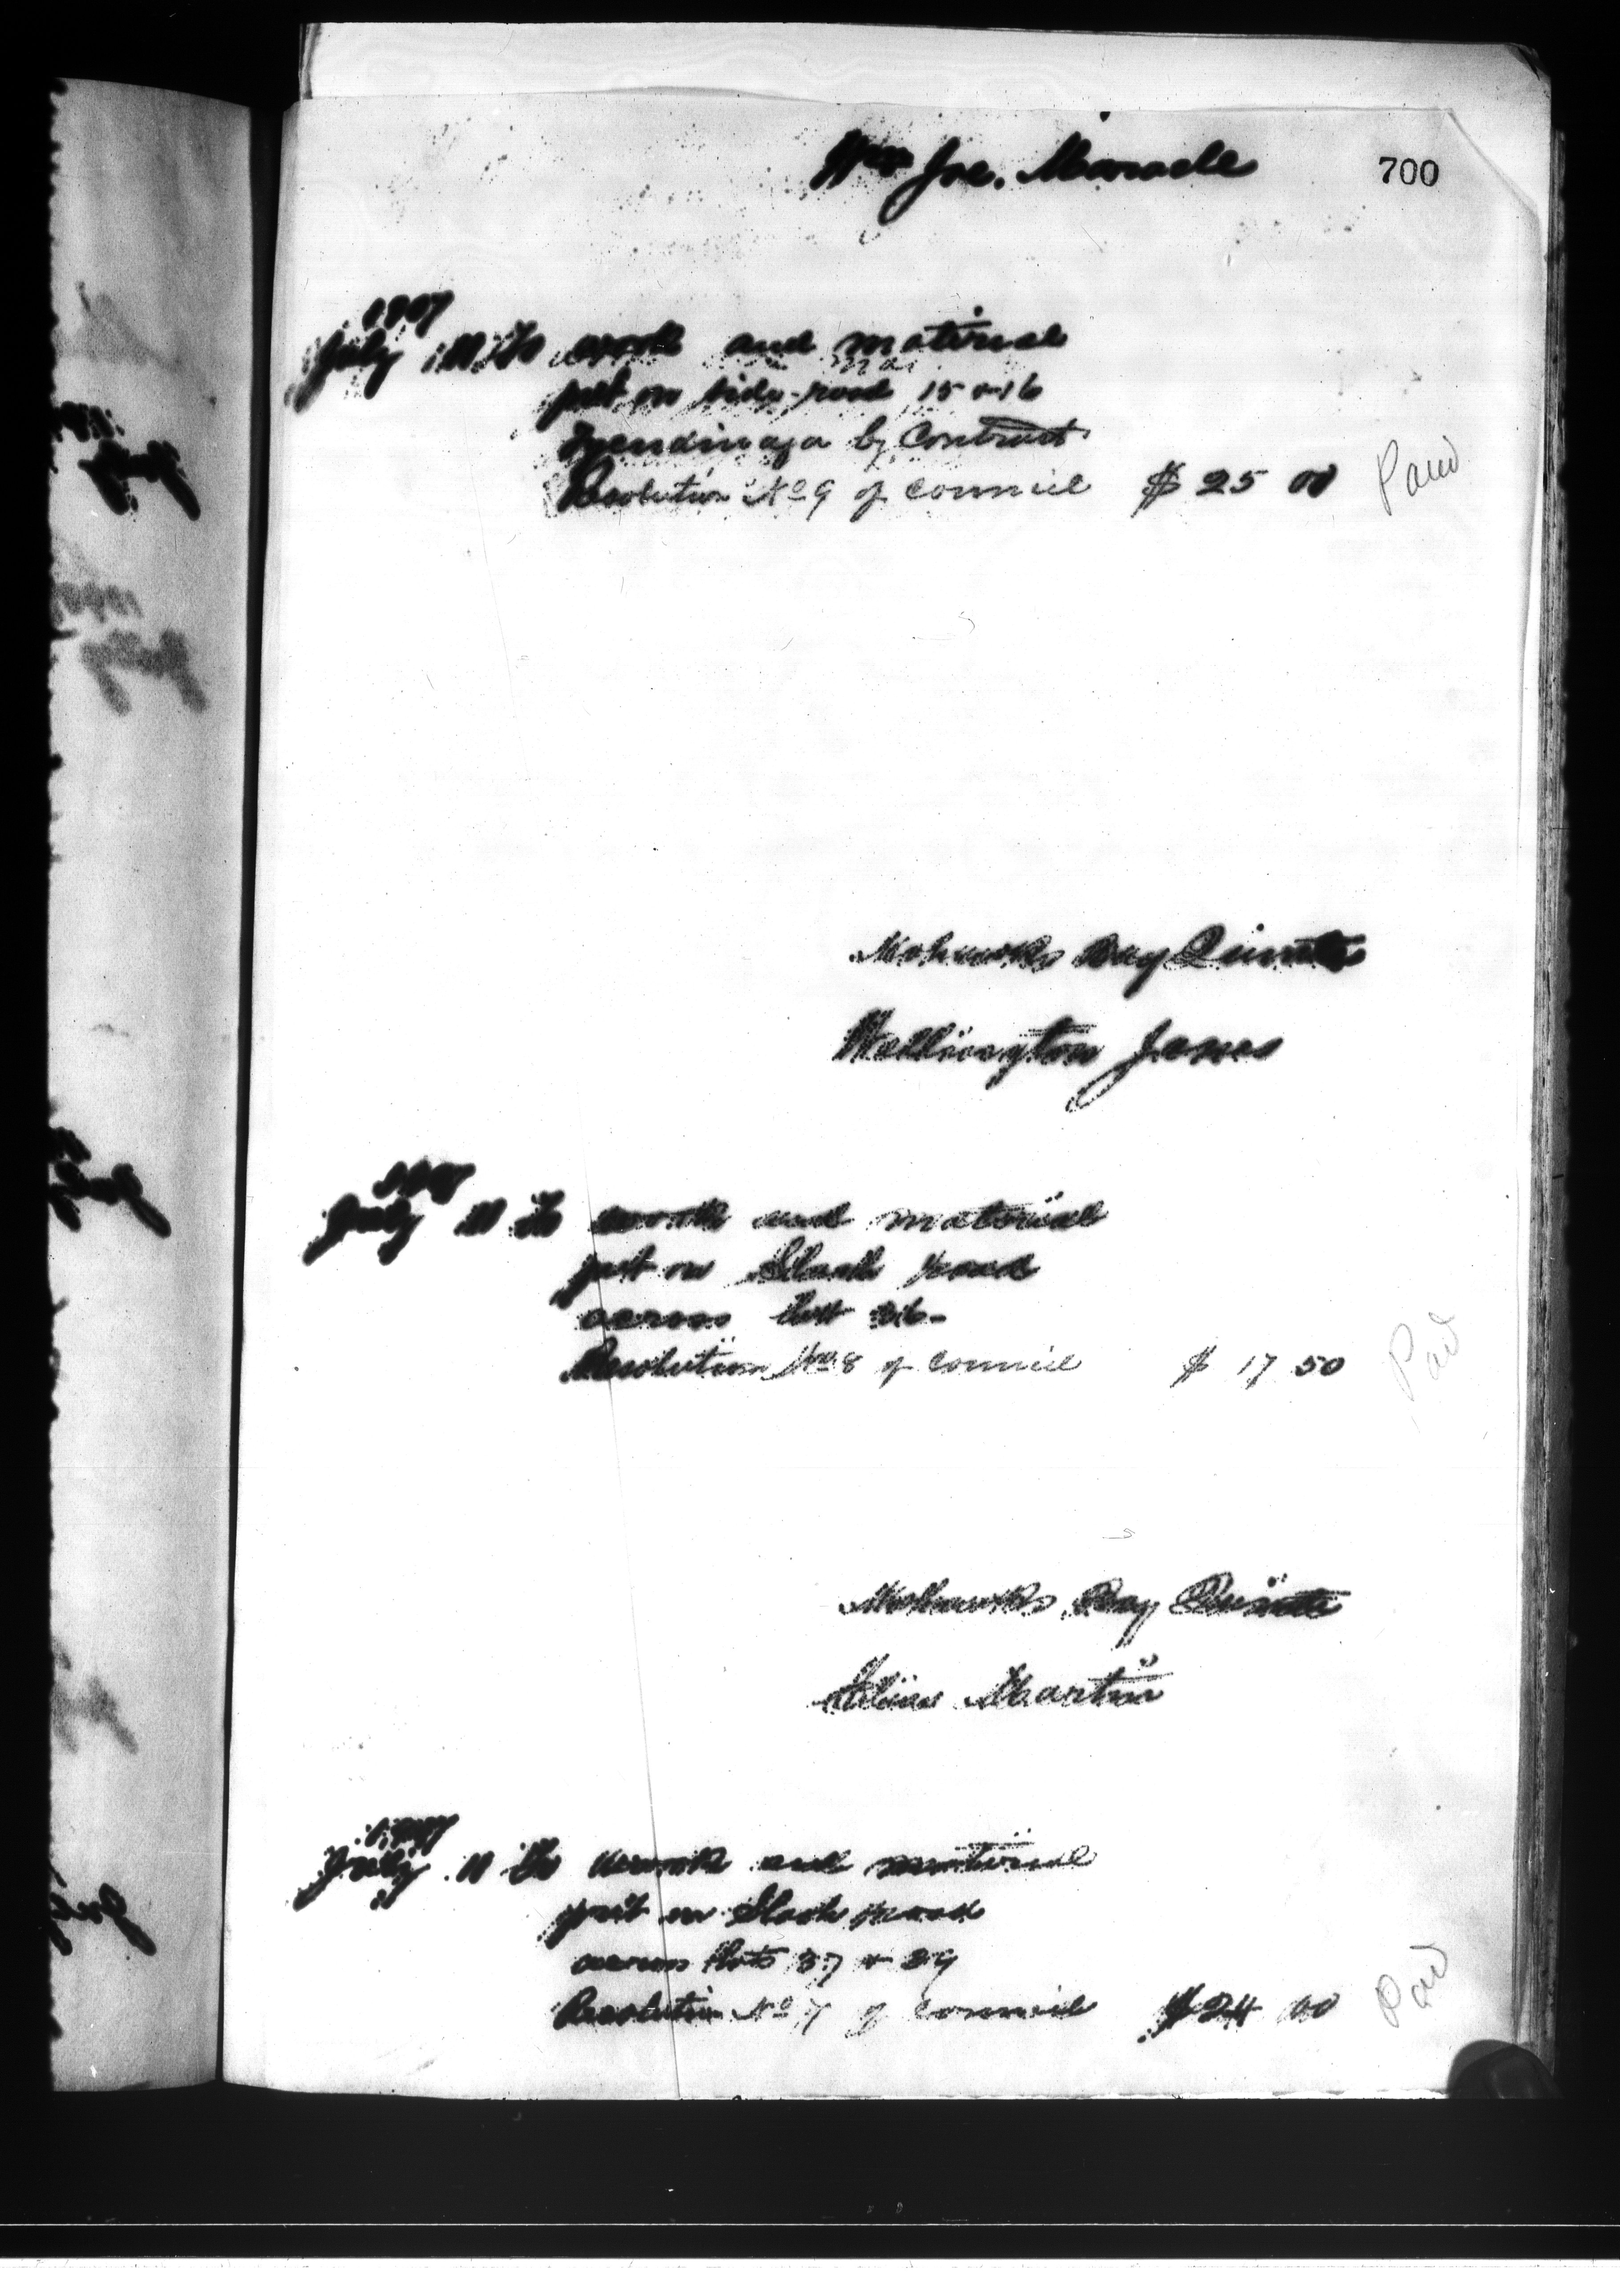 Wm Joe. Maracle
700
1907
July 11 To work and material
put on side road 15 & 16
Tyendinaga by Contract
Resolution No 9 of Council $ 25 00
Paid
Mohawks Bay Quinte
Wellington Jones
1907
July 11 To work and material
put on Slash road
across lot 36-
Resolution No 8 of Council $ 17 50
Paid
Mohawks Bay Quinte
Martin
1907
July 11 To work and material
put on Slash road
across lots 37 & 39
Resolution No 7 of Council $ 24 00
Paid